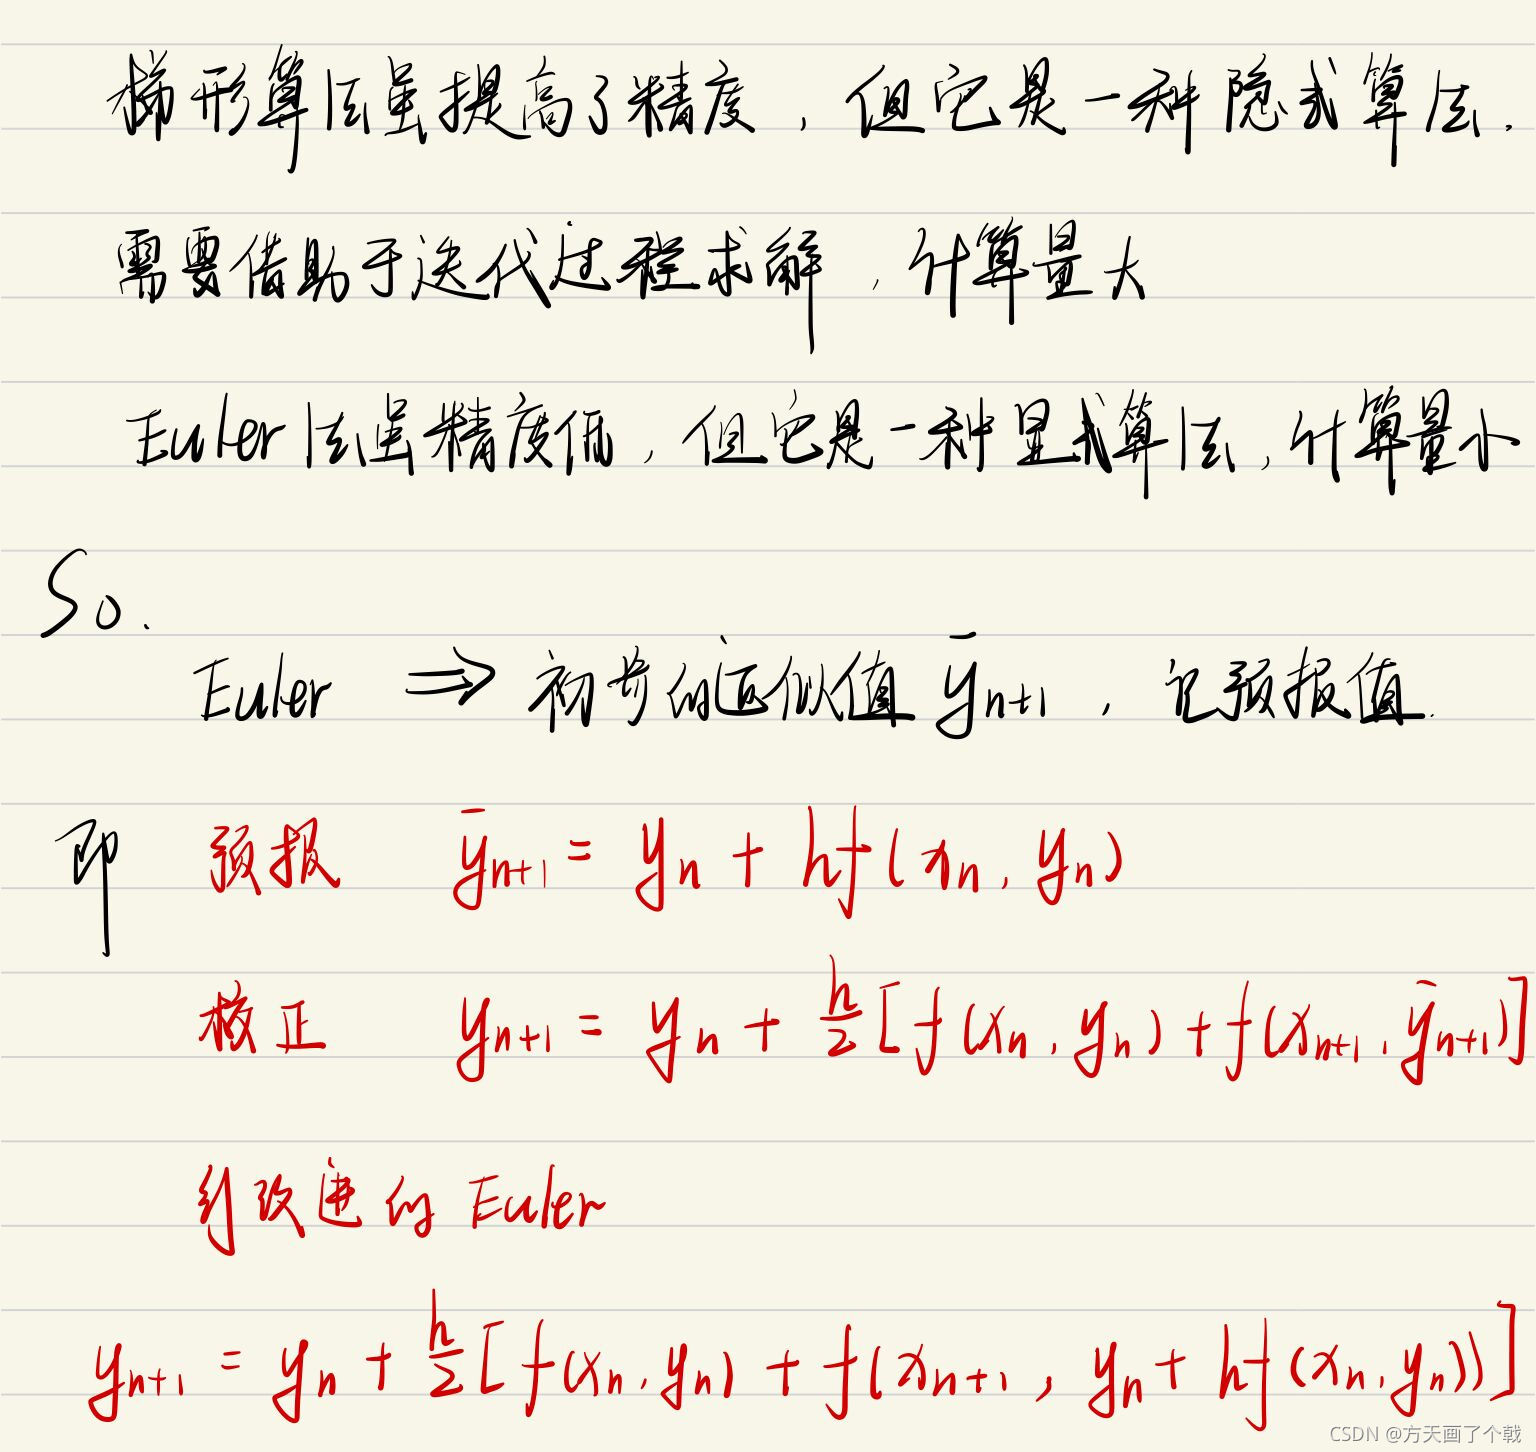 梯形算法虽提高了精度，但它是一种隐式算法.
需要借助于迭代过程求解，计算量大
Euler法虽精度低，但它是一种显式算法，计算量小
So.
Euler ⇒ 初步的近似值 ȳₙ₊₁，记预报值.
即 预报 ȳₙ₊₁ = yₙ + hf(xₙ, yₙ)
校正 yₙ₊₁ = yₙ + h/2 [f(xₙ, yₙ) + f(xₙ₊₁, ȳₙ₊₁)]
改进的 Euler
yₙ₊₁ = yₙ + h/2 [f(xₙ, yₙ) + f(xₙ₊₁, yₙ + hf(xₙ, yₙ))]
CSDN @方天画了个戟